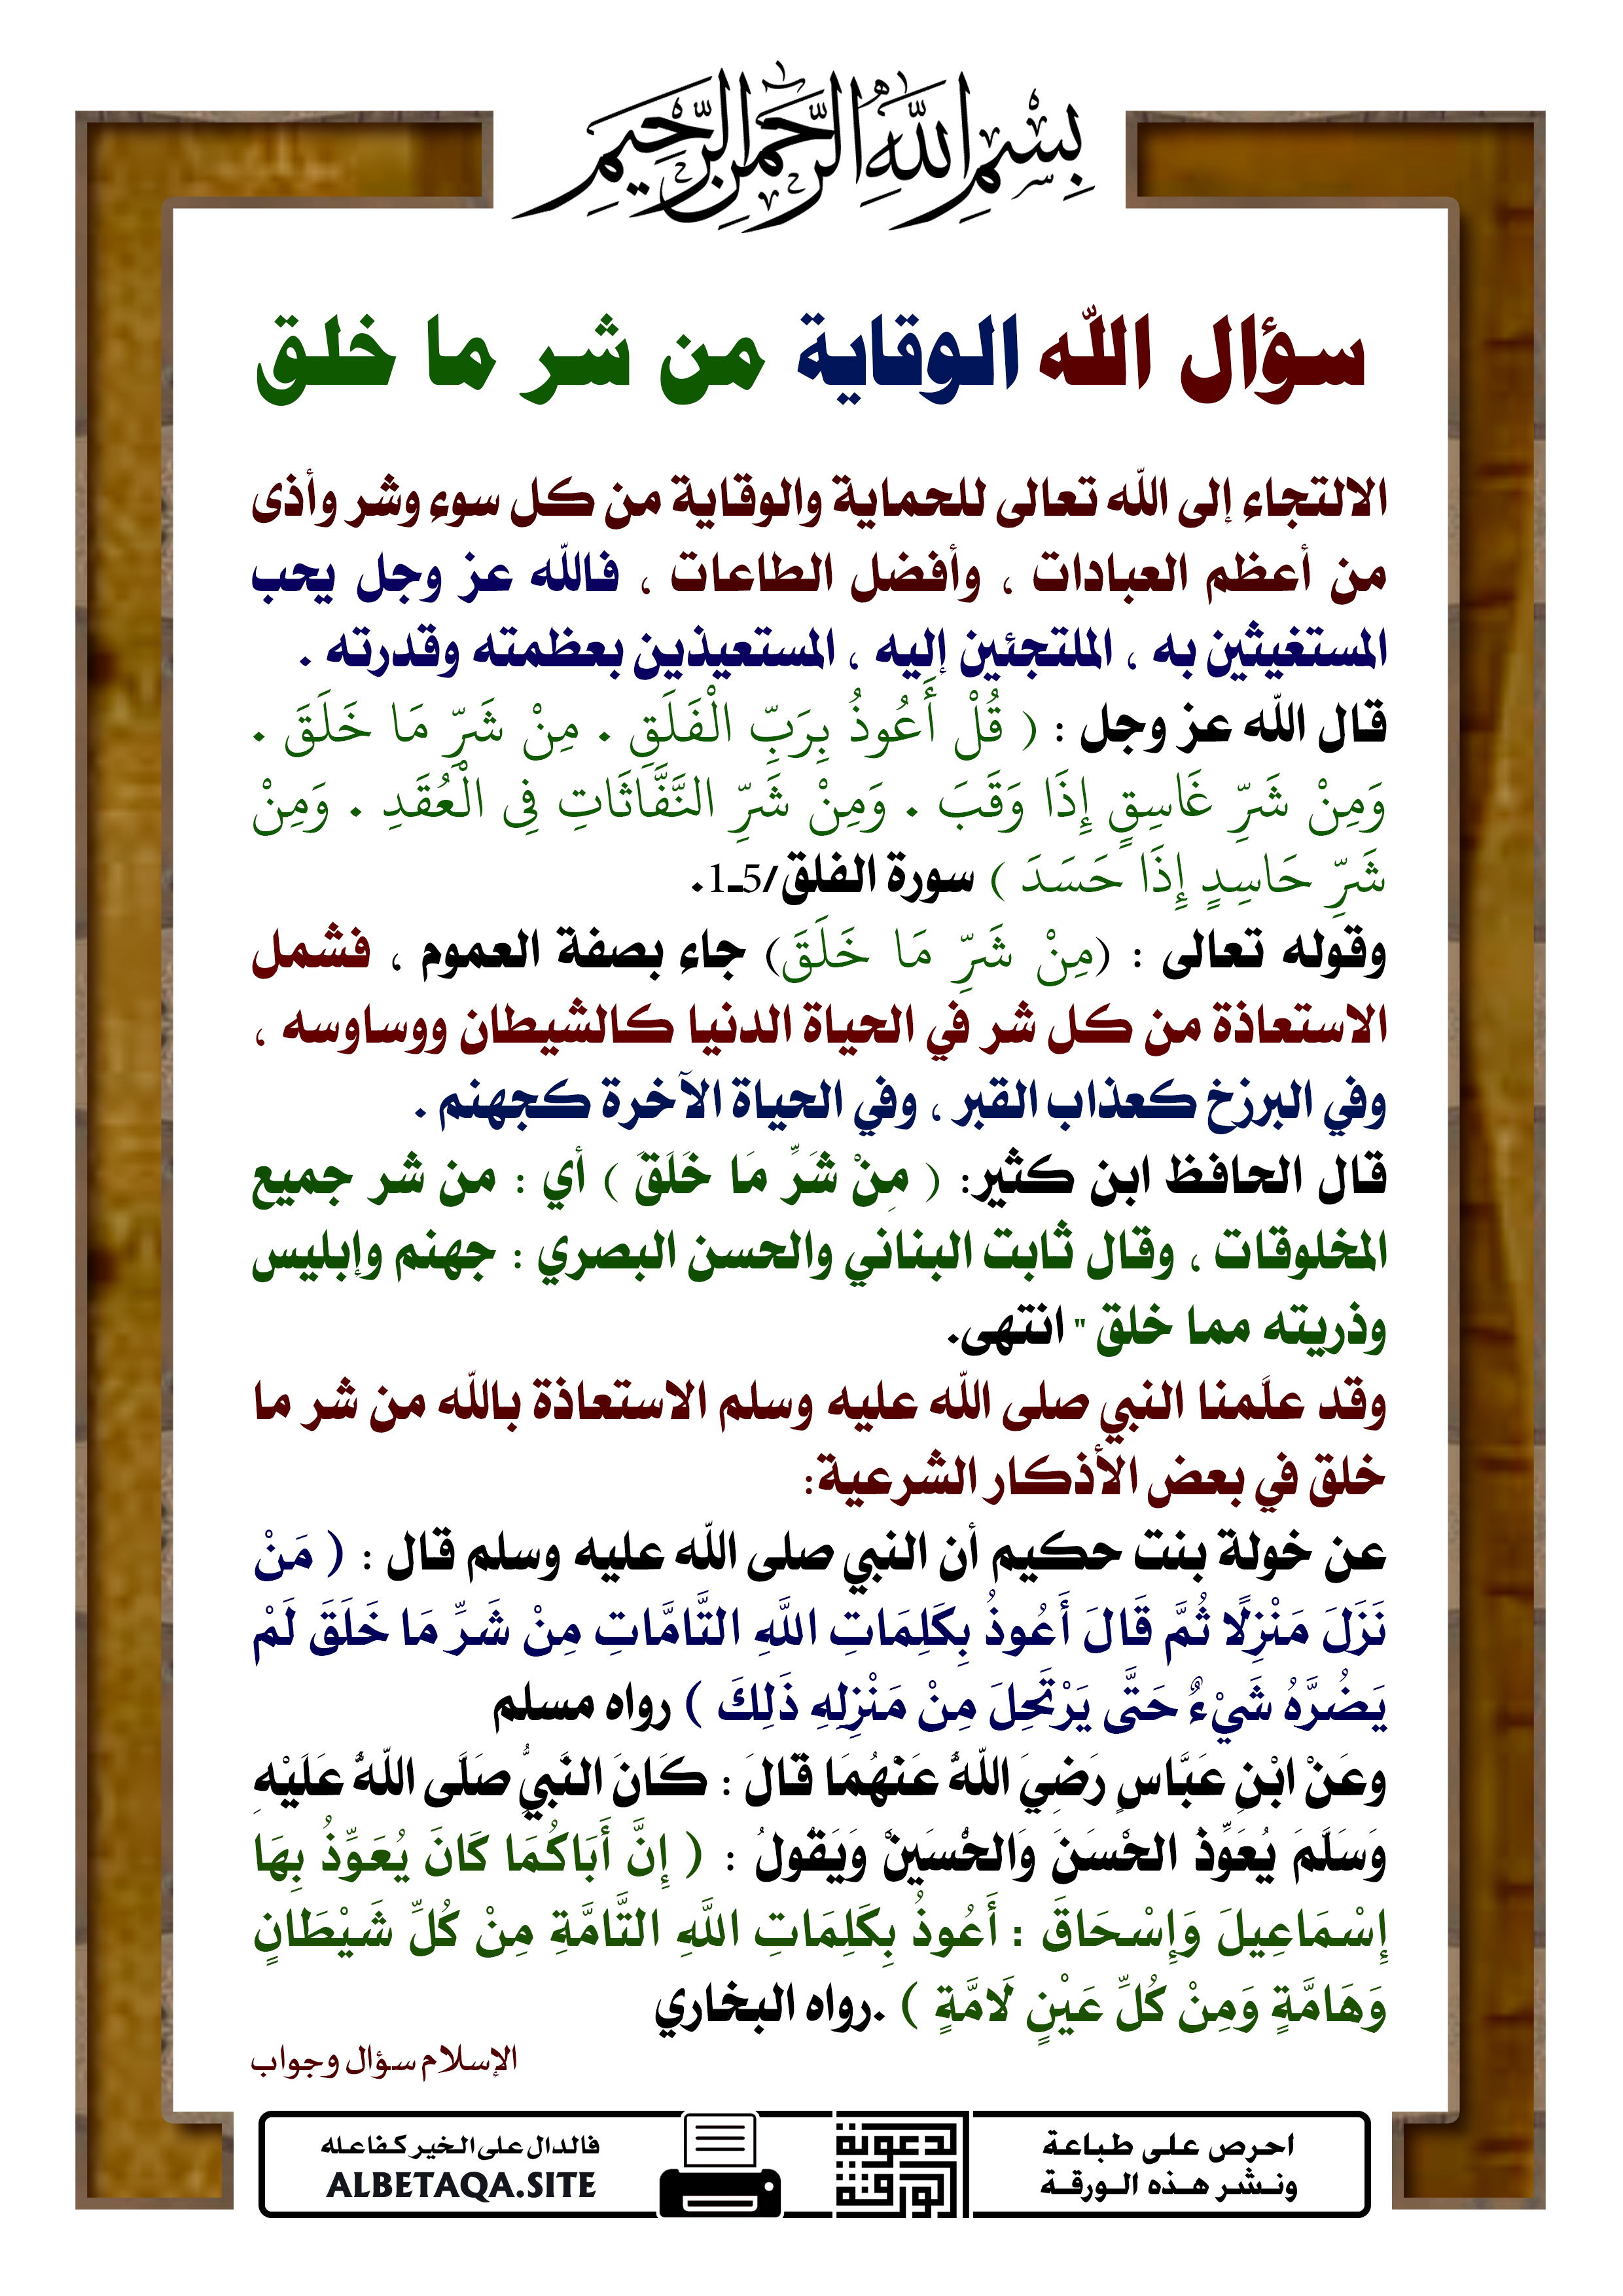 بِسْمِ اللَّهِ الرَّحْمَٰنِ الرَّحِيمِ
سؤال الله الوقاية من شر ما خلق
الالتجاء إلى الله تعالى للحماية والوقاية من كل سوء وشر وأذى
من أعظم العبادات ، وأفضل الطاعات ، فالله عز وجل يحب
المستغيثين به ، الملتجئين إليه ، المستعيذين بعظمته وقدرته .
قال الله عز وجل : ( قُلْ أَعُوذُ بِرَبِّ الْفَلَقِ . مِنْ شَرِّ مَا خَلَقَ .
وَمِنْ شَرِّ غَاسِقٍ إِذَا وَقَبَ . وَمِنْ شَرِّ النَّفَّاثَاتِ فِي الْعُقَدِ . وَمِنْ
شَرِّ حَاسِدٍ إِذَا حَسَدَ ) سورة الفلق/1ـ5.
وقوله تعالى : (مِنْ شَرِّ مَا خَلَقَ) جاء بصفة العموم ، فشمل
الاستعاذة من كل شر في الحياة الدنيا كالشيطان ووساوسه ،
وفي البرزخ كعذاب القبر ، وفي الحياة الآخرة كجهنم .
قال الحافظ ابن كثير: ( مِنْ شَرِّ مَا خَلَقَ ) أي : من شر جميع
المخلوقات ، وقال ثابت البناني والحسن البصري : جهنم وإبليس
وذريته مما خلق " انتهى.
وقد علَّمنا النبي صلى الله عليه وسلم الاستعاذة بالله من شر ما
خلق في بعض الأذكار الشرعية:
عن خولة بنت حكيم أن النبي صلى الله عليه وسلم قال : ( مَنْ
نَزَلَ مَنْزِلًا ثُمَّ قَالَ أَعُوذُ بِكَلِمَاتِ اللَّهِ التَّامَّاتِ مِنْ شَرِّ مَا خَلَقَ لَمْ
يَضُرَّهُ شَيْءٌ حَتَّى يَرْتَحِلَ مِنْ مَنْزِلِهِ ذَلِكَ ) رواه مسلم
وعَنْ ابْنِ عَبَّاسٍ رَضِيَ اللَّهُ عَنْهُمَا قَالَ : كَانَ النَّبِيُّ صَلَّى اللَّهُ عَلَيْهِ
وَسَلَّمَ يُعَوِّذُ الحْسَنَ وَالحْسَيْنَ وَيَقُولُ : ( إِنَّ أَبَاكُمَا كَانَ يُعَوِّذُ بِهَا
إِسْمَاعِيلَ وَإِسْحَاقَ : أَعُوذُ بِكَلِمَاتِ اللَّهِ التَّامَّةِ مِنْ كُلِّ شَيْطَانٍ
وَهَامَّةٍ وَمِنْ كُلِّ عَيْنٍ لَامَّةٍ ) .رواه البخاري
الإسلام سؤال وجواب
احرص على طباعة
ونشر هذه الورقة
الدعوية
الورقية
فالدال على الخير كفاعله
ALBETAQA.SITE